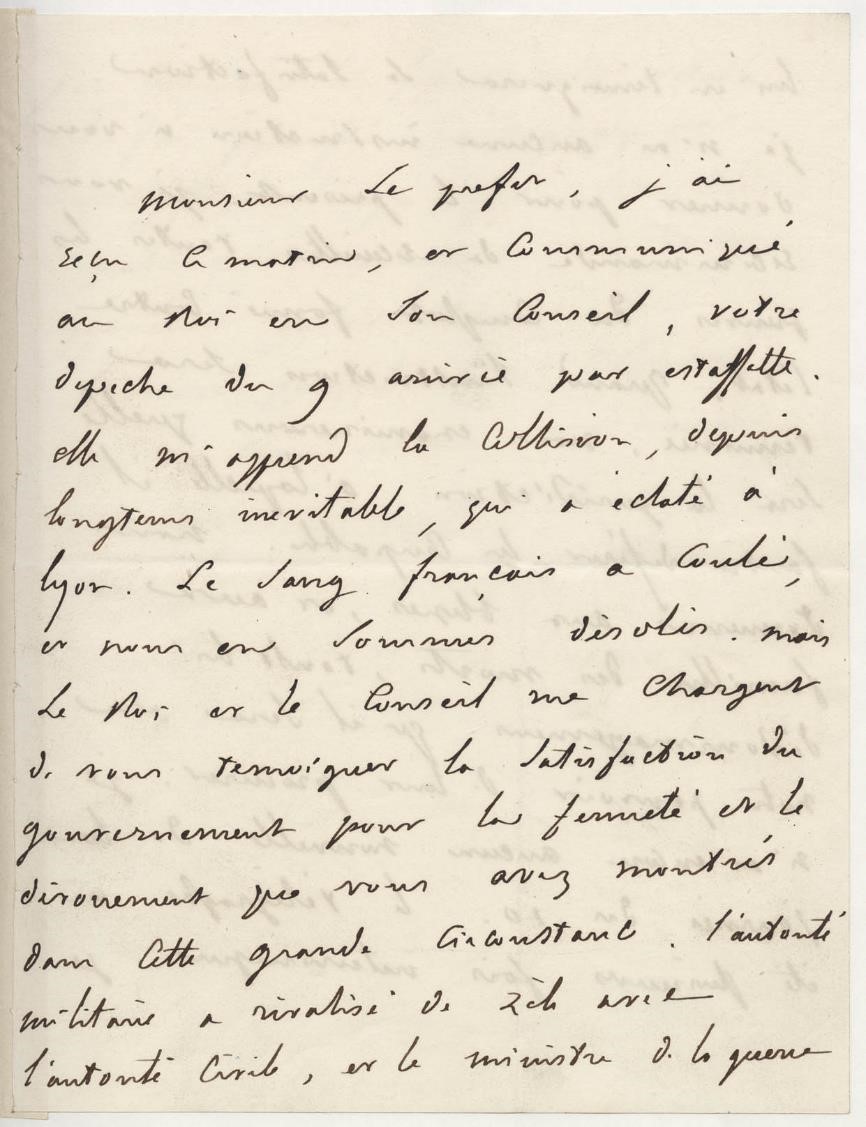 Monsieur Le prefet, j'ai
reçu ce matin, et communiqué
au Roi en son Conseil, votre
depeche du 9 arrivée par estaffette.
elle m'apprend la Collision, depuis
longtems inevitable, qui a éclaté à
lyon. Le sang français a coulé,
et nous en sommes désolés. mais
Le Roi et le Conseil me chargent
de vous temoigner la satisfaction du
gouvernement pour la fermeté et le
dévouement que vous avez montrés
dans cette grande circonstance. l'autorité
militaire a rivalisé de zèle avec
l'autorité civile, et le ministre de la guerre